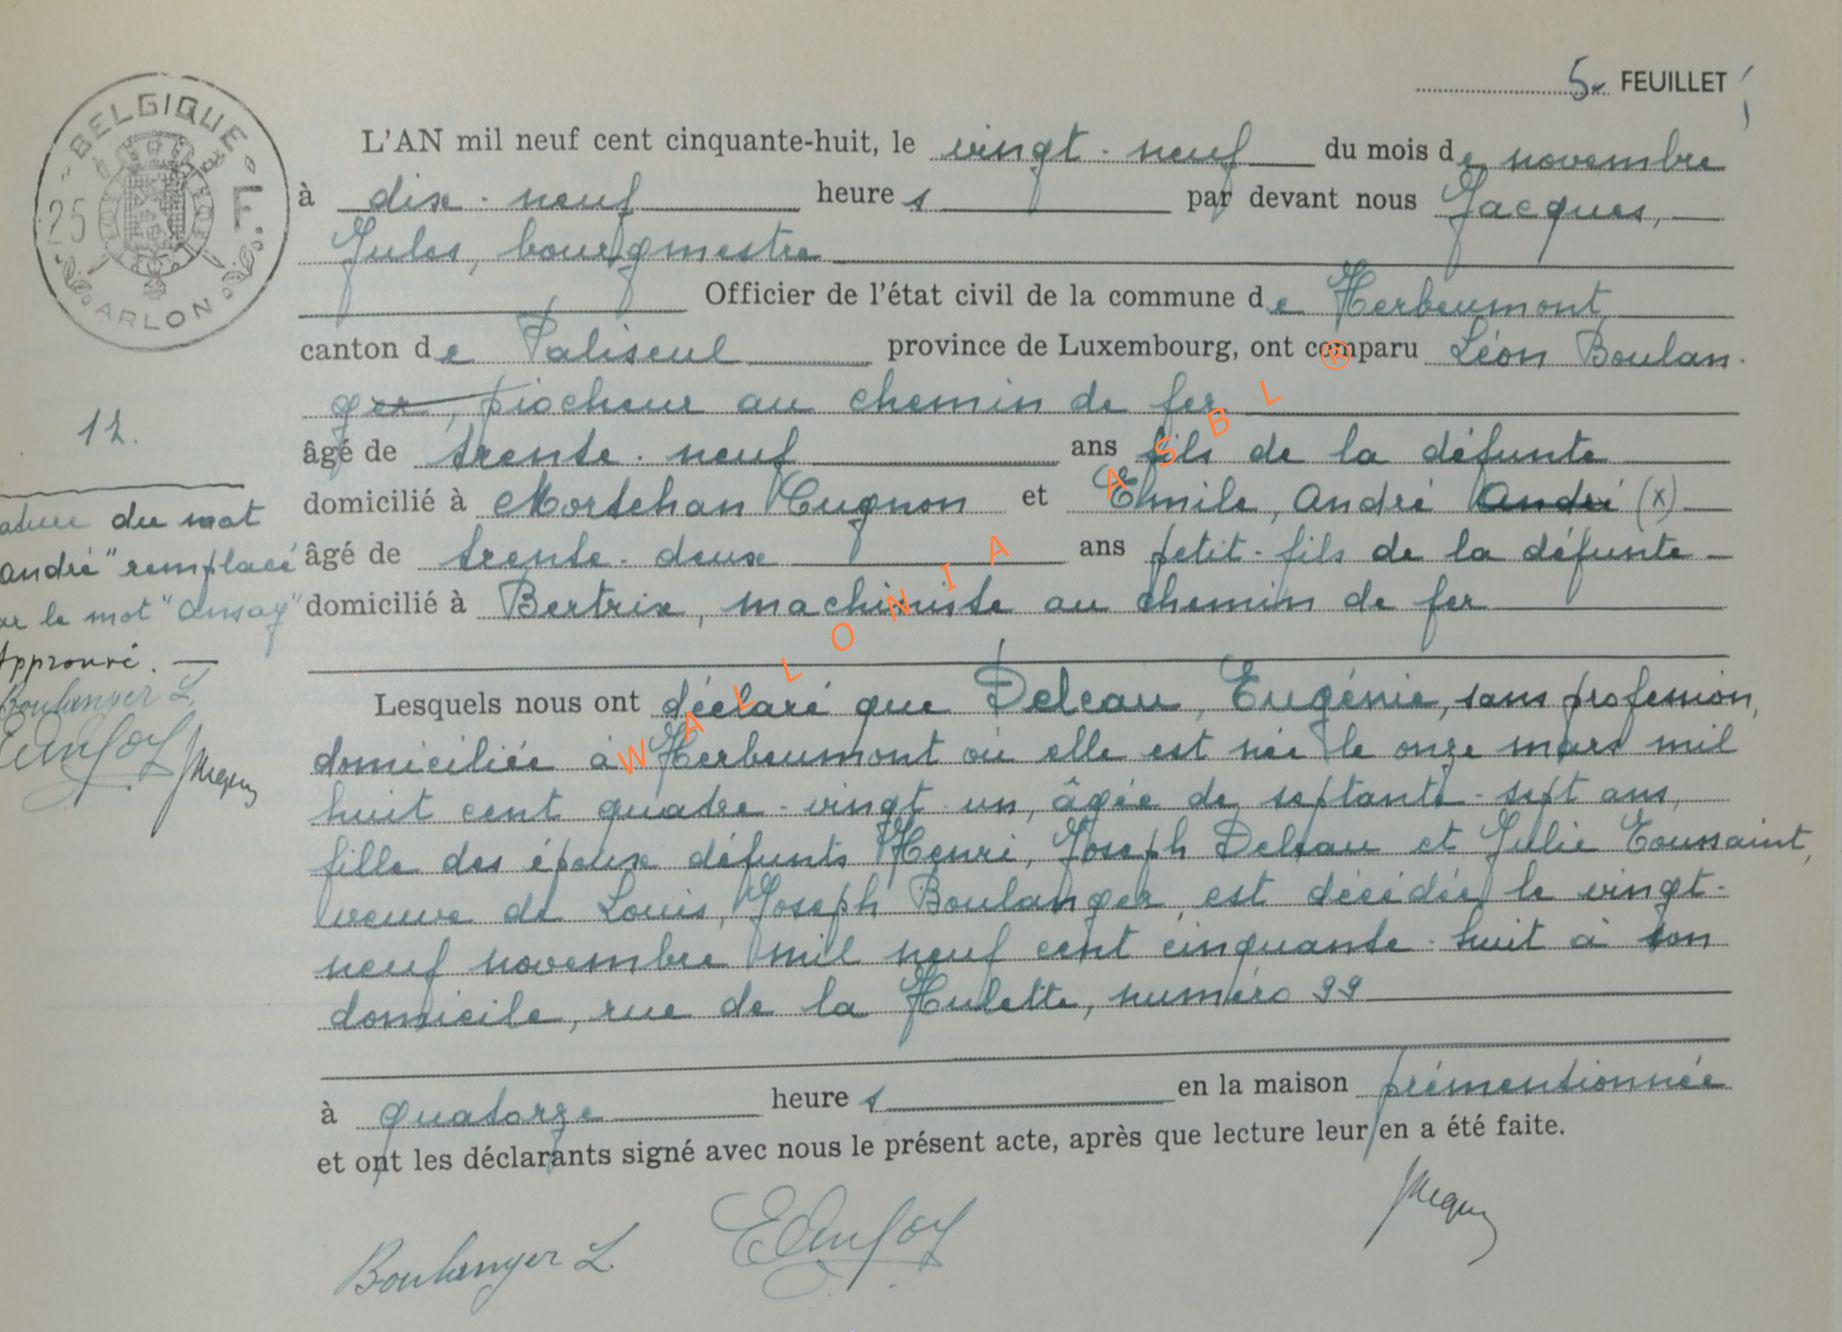 5e FEUILLET
BELGIQUE
25 F
ARLON
L'AN mil neuf cent cinquante-huit, le vingt-neuf du mois de novembre
à dix-neuf heures par devant nous Jacques,
Jules, bourgmestre
Officier de l'état civil de la commune de Herbeumont
canton de Paliseul province de Luxembourg, ont comparu Léon Boulan-
ger, piocheur au chemin de fer
12.
âgé de trente-neuf ans fils de la défunte
domicilié à Mortehan Cugnon et Emile, André André (x)
âgé de trente-deux ans petit-fils de la défunte
domicilié à Bertrix, machiniste au chemin de fer
ature du mot
"André" remplacé
ar le mot "Ansay"
Approuvé.
Boulanger L.
EAnsay Jacques
Lesquels nous ont déclaré que Deleau, Eugénie, sans profession,
domiciliée à Herbeumont où elle est née le onze mars mil
huit cent quatre-vingt-un, âgée de septante-sept ans,
fille des époux défunts Henri, Joseph Deleau et Julie Toussaint,
veuve de Louis, Joseph Boulanger, est décédée le vingt-
neuf novembre mil neuf cent cinquante-huit à son
domicile, rue de la Hulette, numéro 99
à quatorze heures en la maison prémentionnée
et ont les déclarants signé avec nous le présent acte, après que lecture leur en a été faite.
Boulanger L. EAnsay Jacques
WALLONIA ASBL ®